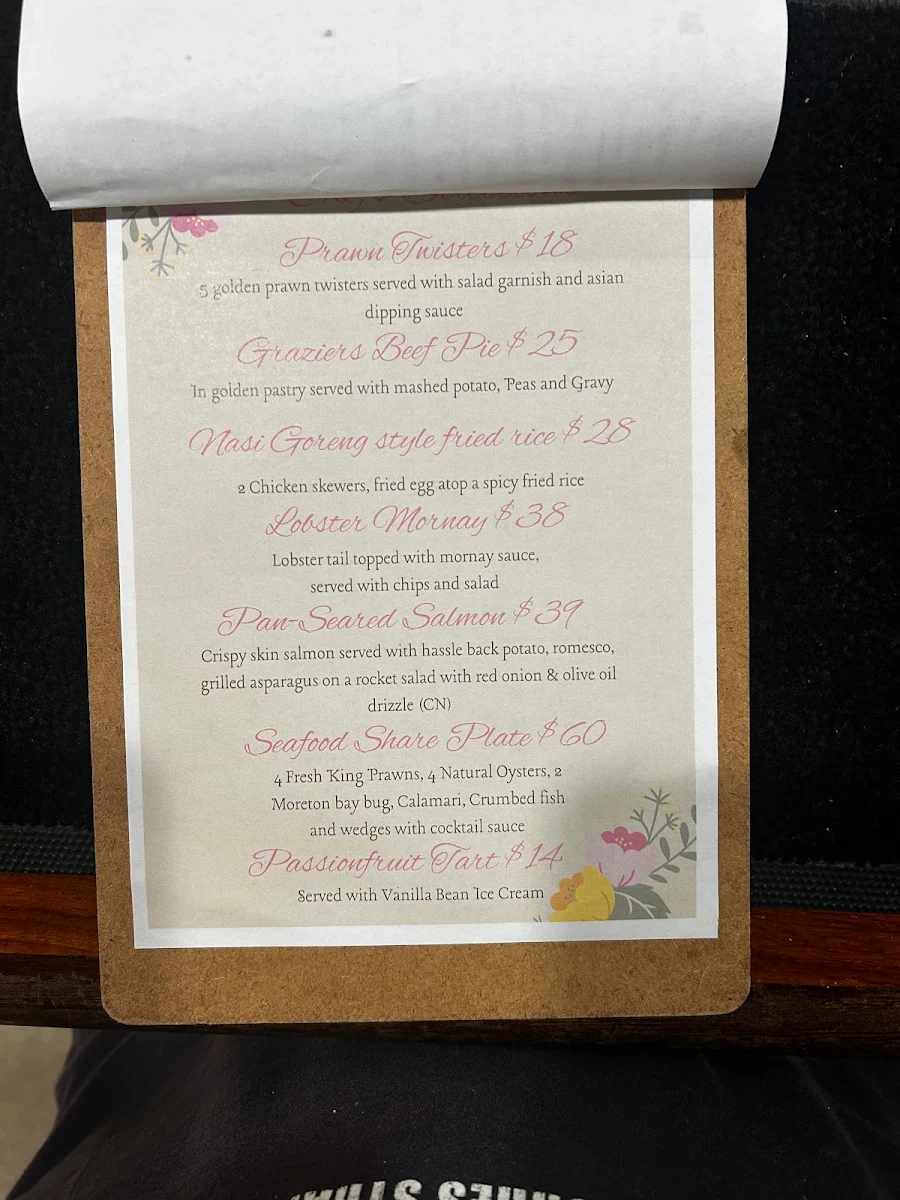 Prawn Twisters $18
5 golden prawn twisters served with salad garnish and asian
dipping sauce
Graziers Beef Pie $25
In golden pastry served with mashed potato, Peas and Gravy
Nasi Goreng style fried rice $28
2 Chicken skewers, fried egg atop a spicy fried rice
Lobster Mornay $38
Lobster tail topped with mornay sauce,
served with chips and salad
Pan-Seared Salmon $39
Crispy skin salmon served with hassle back potato, romesco,
grilled asparagus on a rocket salad with red onion & olive oil
drizzle (CN)
Seafood Share Plate $60
4 Fresh King Prawns, 4 Natural Oysters, 2
Moreton bay bug, Calamari, Crumbed fish
and wedges with cocktail sauce
Passionfruit Tart $14
Served with Vanilla Bean Ice Cream